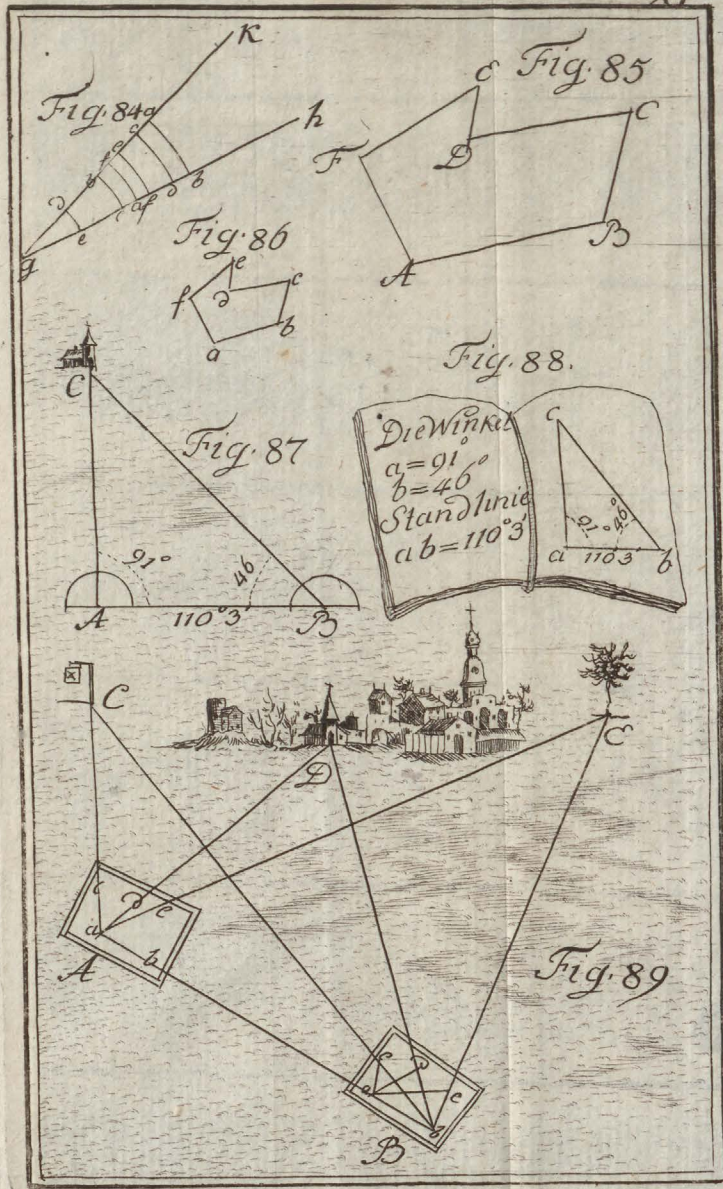 K
Fig. 84
h
g
Fig. 85
E
C
F
D
B
A
Fig. 86
e
c
f
d
b
a
C
Fig. 87
91°
46
A
110°3'
B
Fig. 88.
Die Winkel
a=91°
b=46°
Standlinie
ab=110°3'
c
91°
46°
a
110°3'
b
C
D
E
c
d
e
a
b
A
Fig. 89
c
d
a
e
b
B